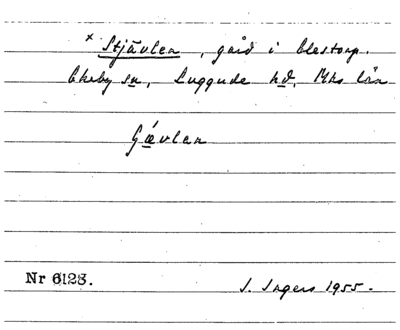 × Stjävlen, gård i Clestorp.
Ekeby sn, Luggude hd, Mhs län
Gævlen
Nr 6123.
I. Ingers 1955.-